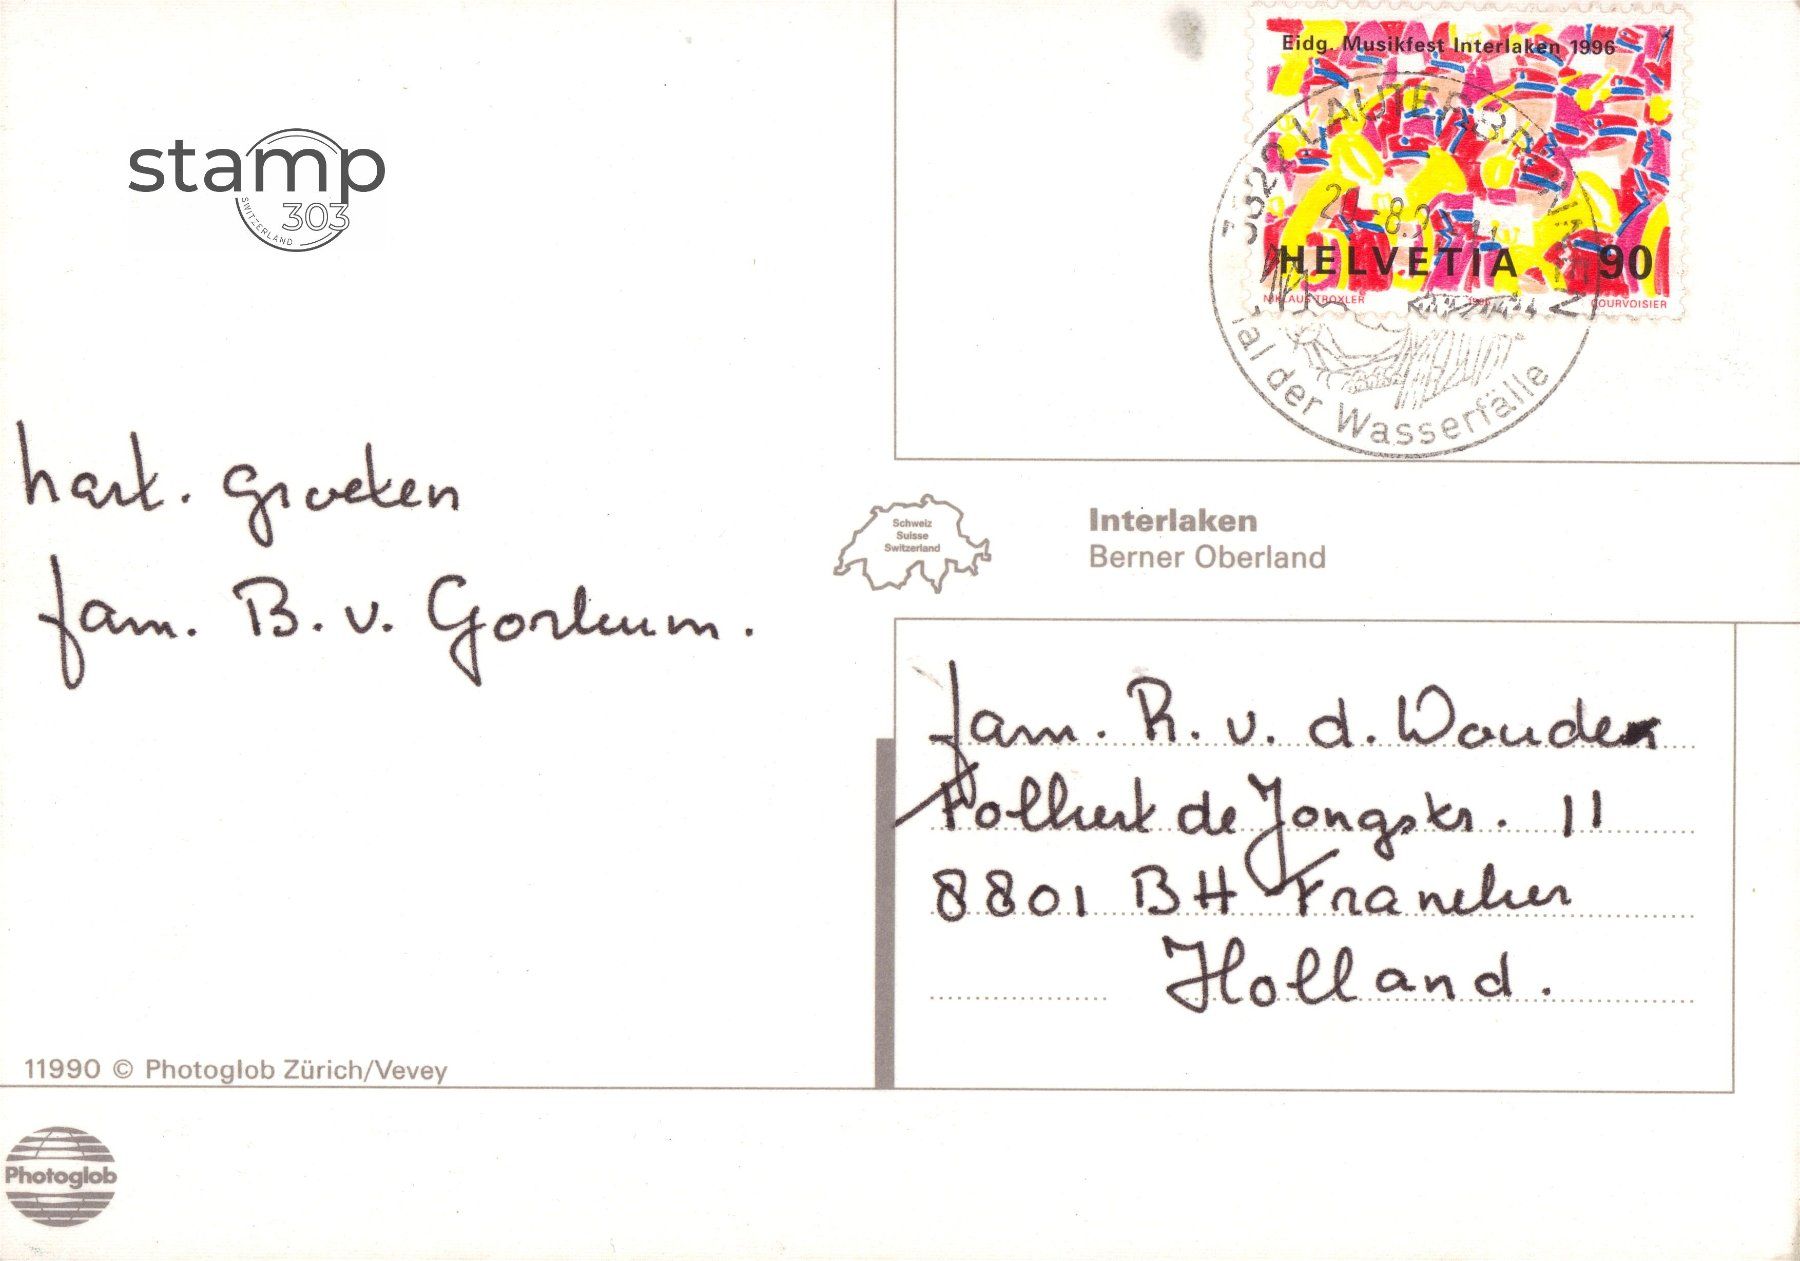 stamp
303
SWITZERLAND
Eidg. Musikfest Interlaken 1996
HELVETIA 90
NIKLAUS TROXLER 1996 COURVOISIER
3822 LAUTERBRUNNEN
Tal der Wasserfälle
hart. groeten
fam. B. v. Gorkum.
Schweiz
Suisse
Switzerland
Interlaken
Berner Oberland
fam. R. v. d. Woude
Folkert de Jongstr. 11
8801 BH Franeker
Holland.
11990 © Photoglob Zürich/Vevey
Photoglob